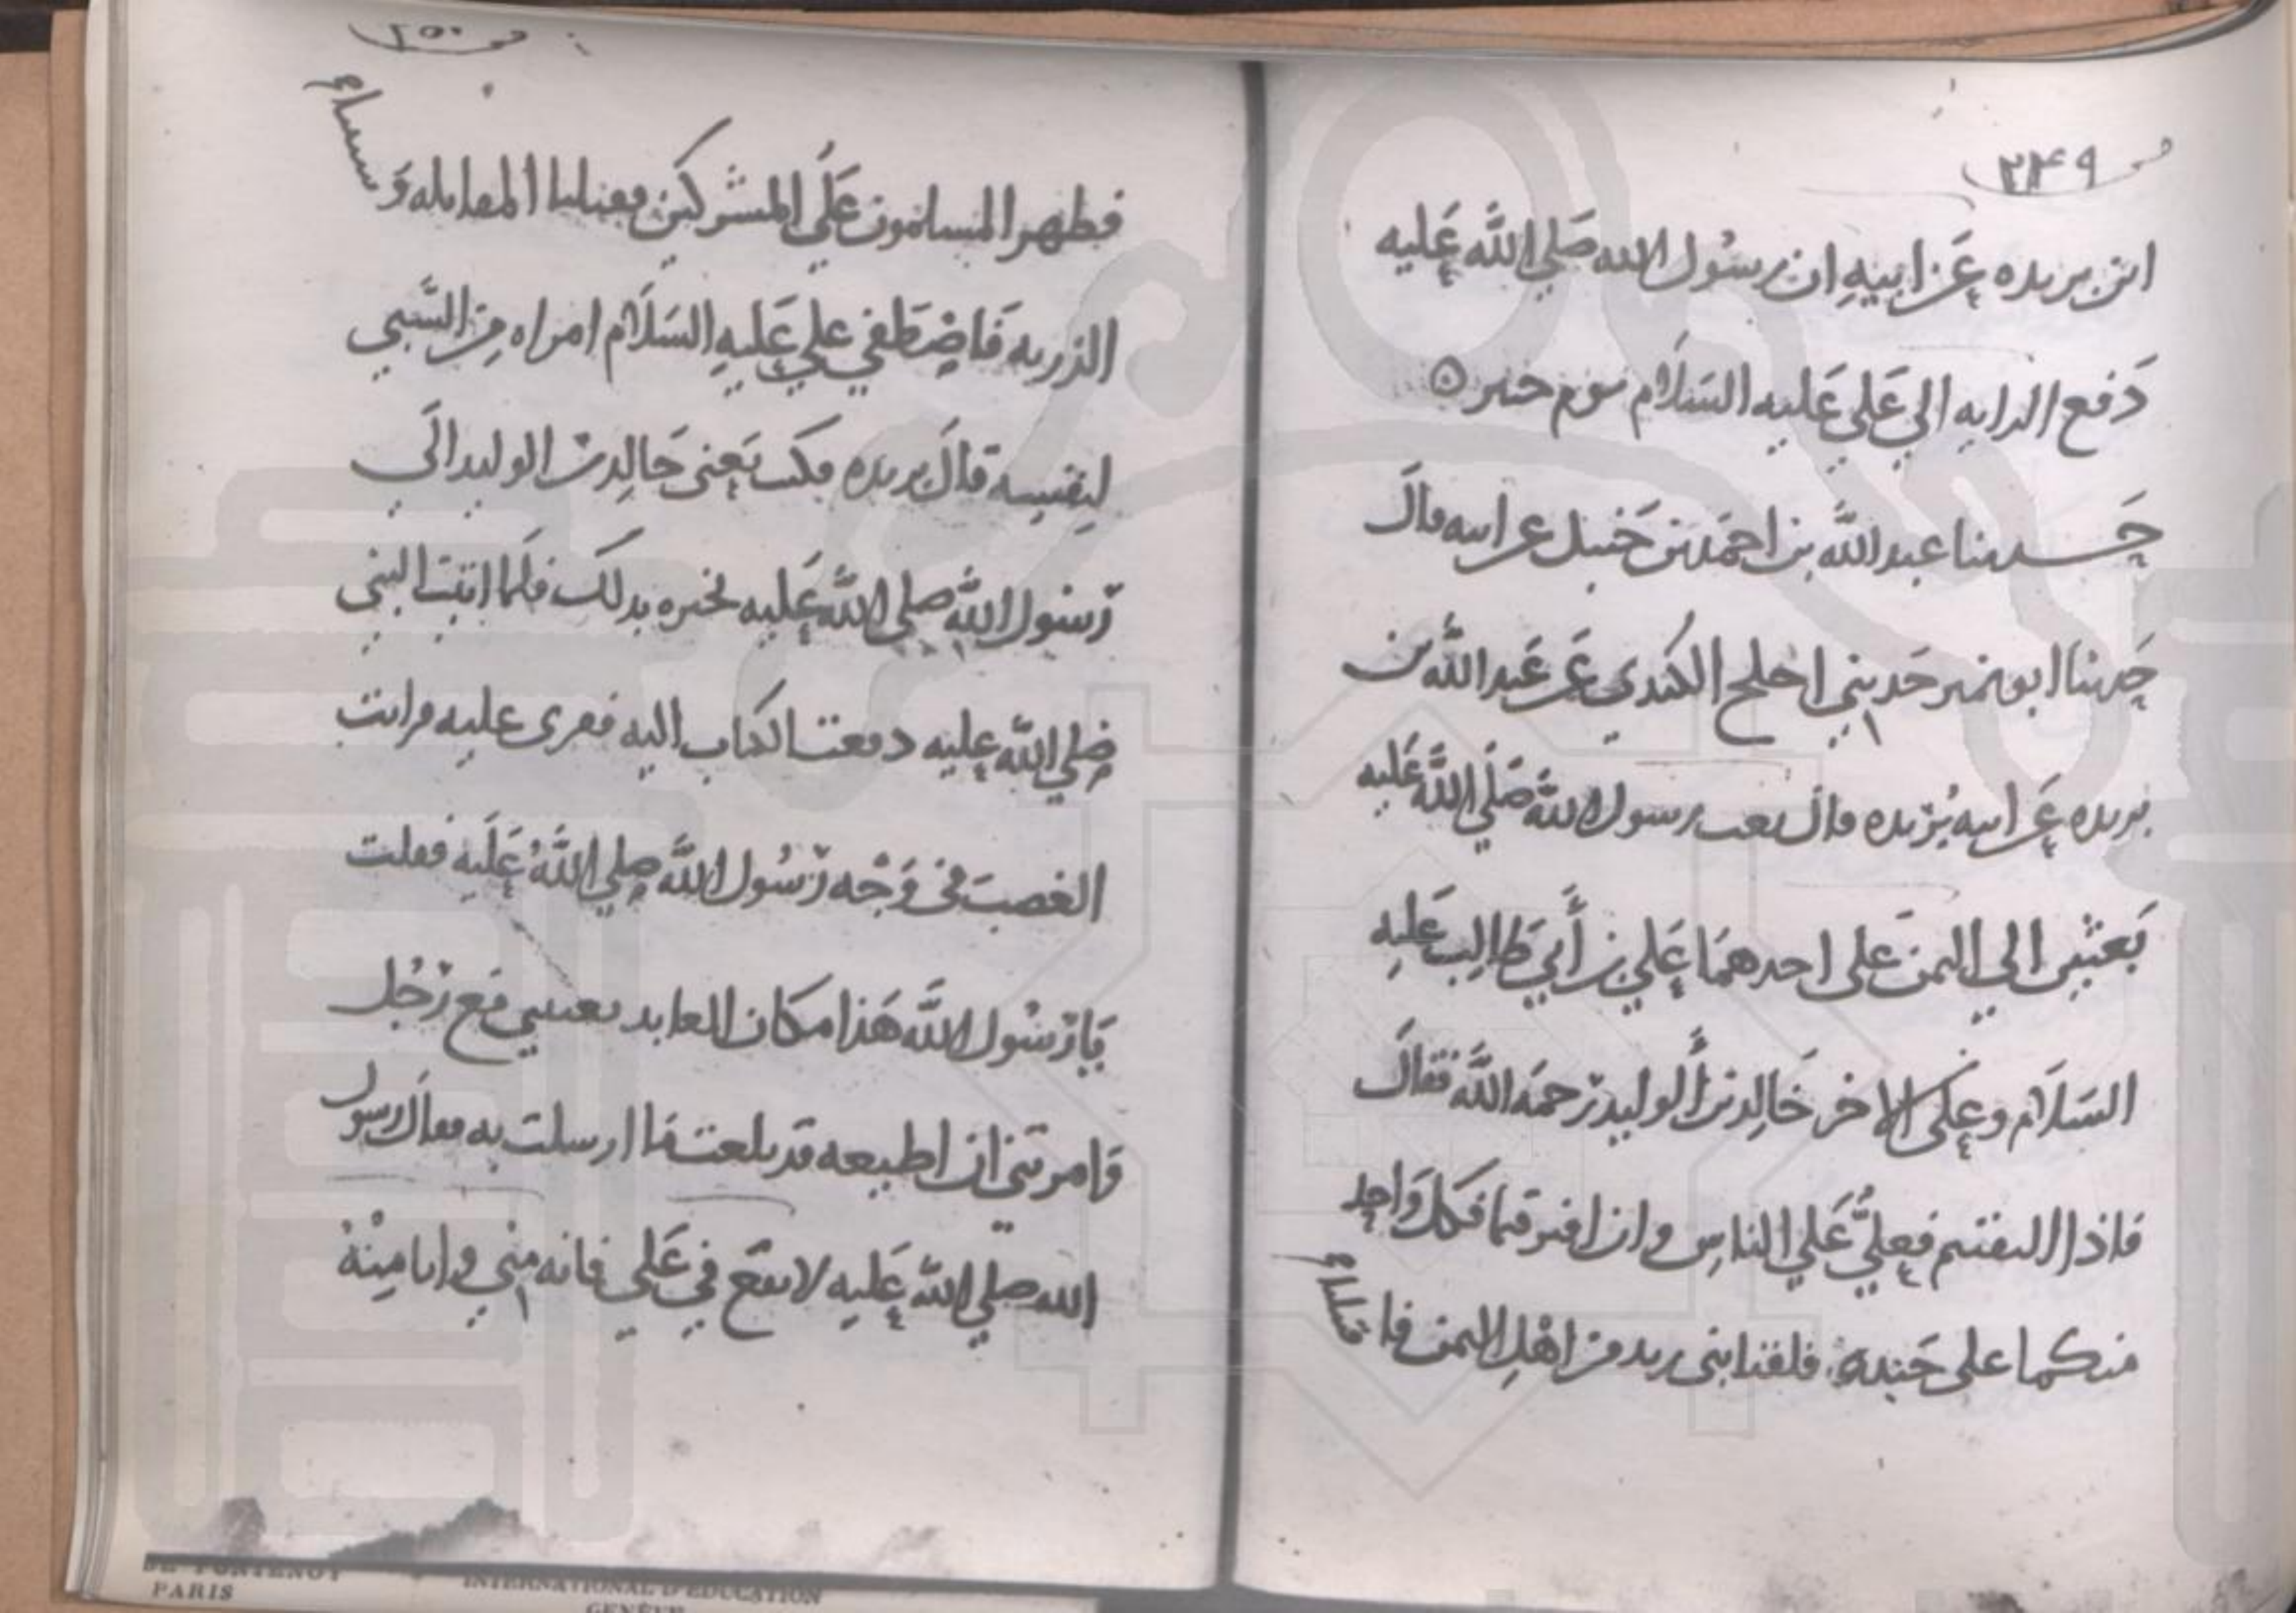 ص ٢٤٩
ابن بريده عَن ابيهِ ان رسُول الله صَلي اللَّه عَليه
دَفع الرايه الي عَلي عَليه السَلَام يوم خيبر ٥
حَدثنا عبد اللَّه بن احمَد بن حَنبل عن ابيه قال
حَدثنا ابو نمير حَدثني اجلح الكندي عَن عَبد اللَّه بن
بريده عَن ابيه بُريده قال بعث رسول اللَّه صَلَّي اللَّه عَليه
بَعثين الي اليمن على احدهمَا عَلي بن أَبي طَالِب عَليهِ
السَلَام وعَلى الاخر خَالِد بن الوليد رَحمَه اللَّه فقالَ
فاذا التقيتم فعليٌّ عَلي الناسِ وان افترقتما فكل وَاحِد
منكما على جَنده فلقنا بني زيد من اهْل اليمن فا قتتلنا
ص ٢٥٠
فظهر المسلمون عَلَي المشركين فقتلنا المقاتله وَ سبينا
الذريه فَاصْطَفي علي عَليهِ السَلَام امراه مِن السَّبي
لِنفسِه قال بريده فكتب يَعني خَالِد بن الوليد الَي
رَسُول اللَّه صلي اللَّه عَليه يخبره بذلك فلَما اتيت النبي
صلي اللَّه عليه دفعت الكتاب اليه فقرى عليه فرايت
الغضبَ في وَجْه رَسُول اللَّه صلي اللَّهُ عَلَيه فقلت
يَا رَسُول اللَّه هَذا مكَان العايد بعثتني مَع رَجُل
وامرتني ان اطيعه قد بلغت ما ارسلت به فقال رسول
الله صلي اللَّه عَليهِ لا تقع في عَلي فانه مني وانا مِنْهُ
DE FONTENOY
PARIS
INTERNATIONAL D'EDUCATION
GENÈVE